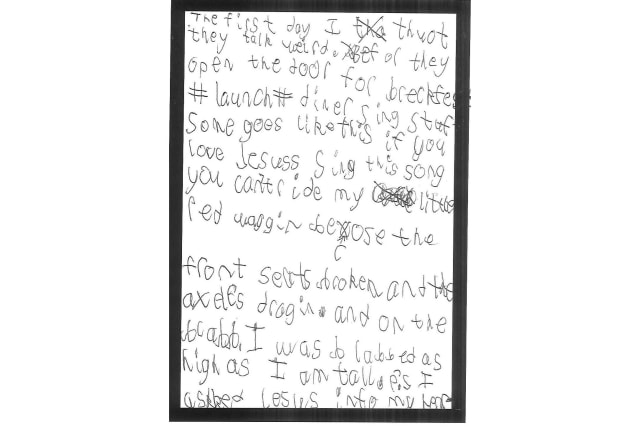 The first day I thuot
they talk weird. Befor they
open the door for breckfes
# launch # diner sing stuf
Some goes like this if you
love Jesuss sing this song
you can't ride my little
red waggin becose the
front seets broken and the
axels dragin. and on the
I was blabbed as
high as I am tall. I
asked Jesus into my